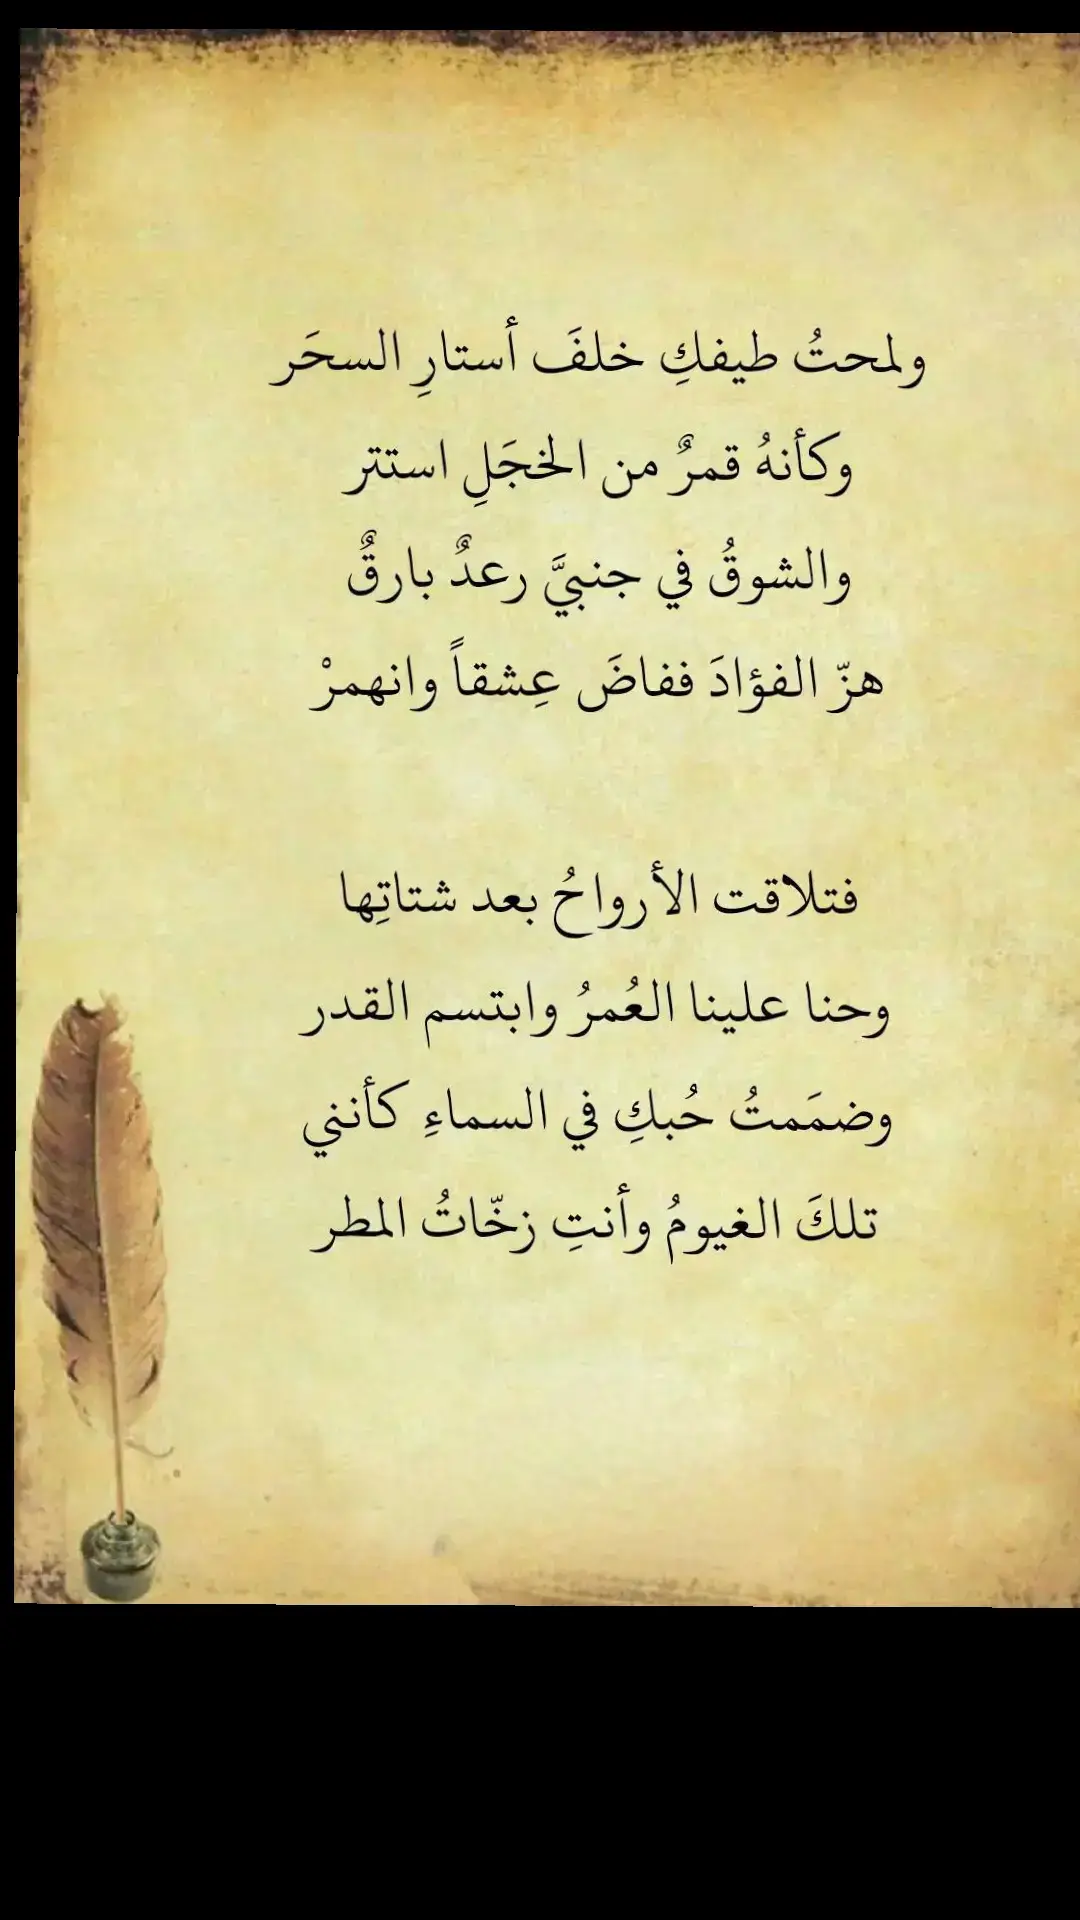 ولمحتُ طيفكِ خلفَ أستارِ السحَر
وكأنهُ قمرٌ من الخجَلِ استتر
والشوقُ في جنبيَّ رعدٌ بارقٌ
هزّ الفؤادَ ففاضَ عِشقاً وانهمرْ
فتلاقت الأرواحُ بعد شتاتِها
وحنا علينا العُمرُ وابتسم القدر
وضمَمتُ حُبكِ في السماءِ كأنني
تلكَ الغيومُ وأنتِ زخّاتُ المطر